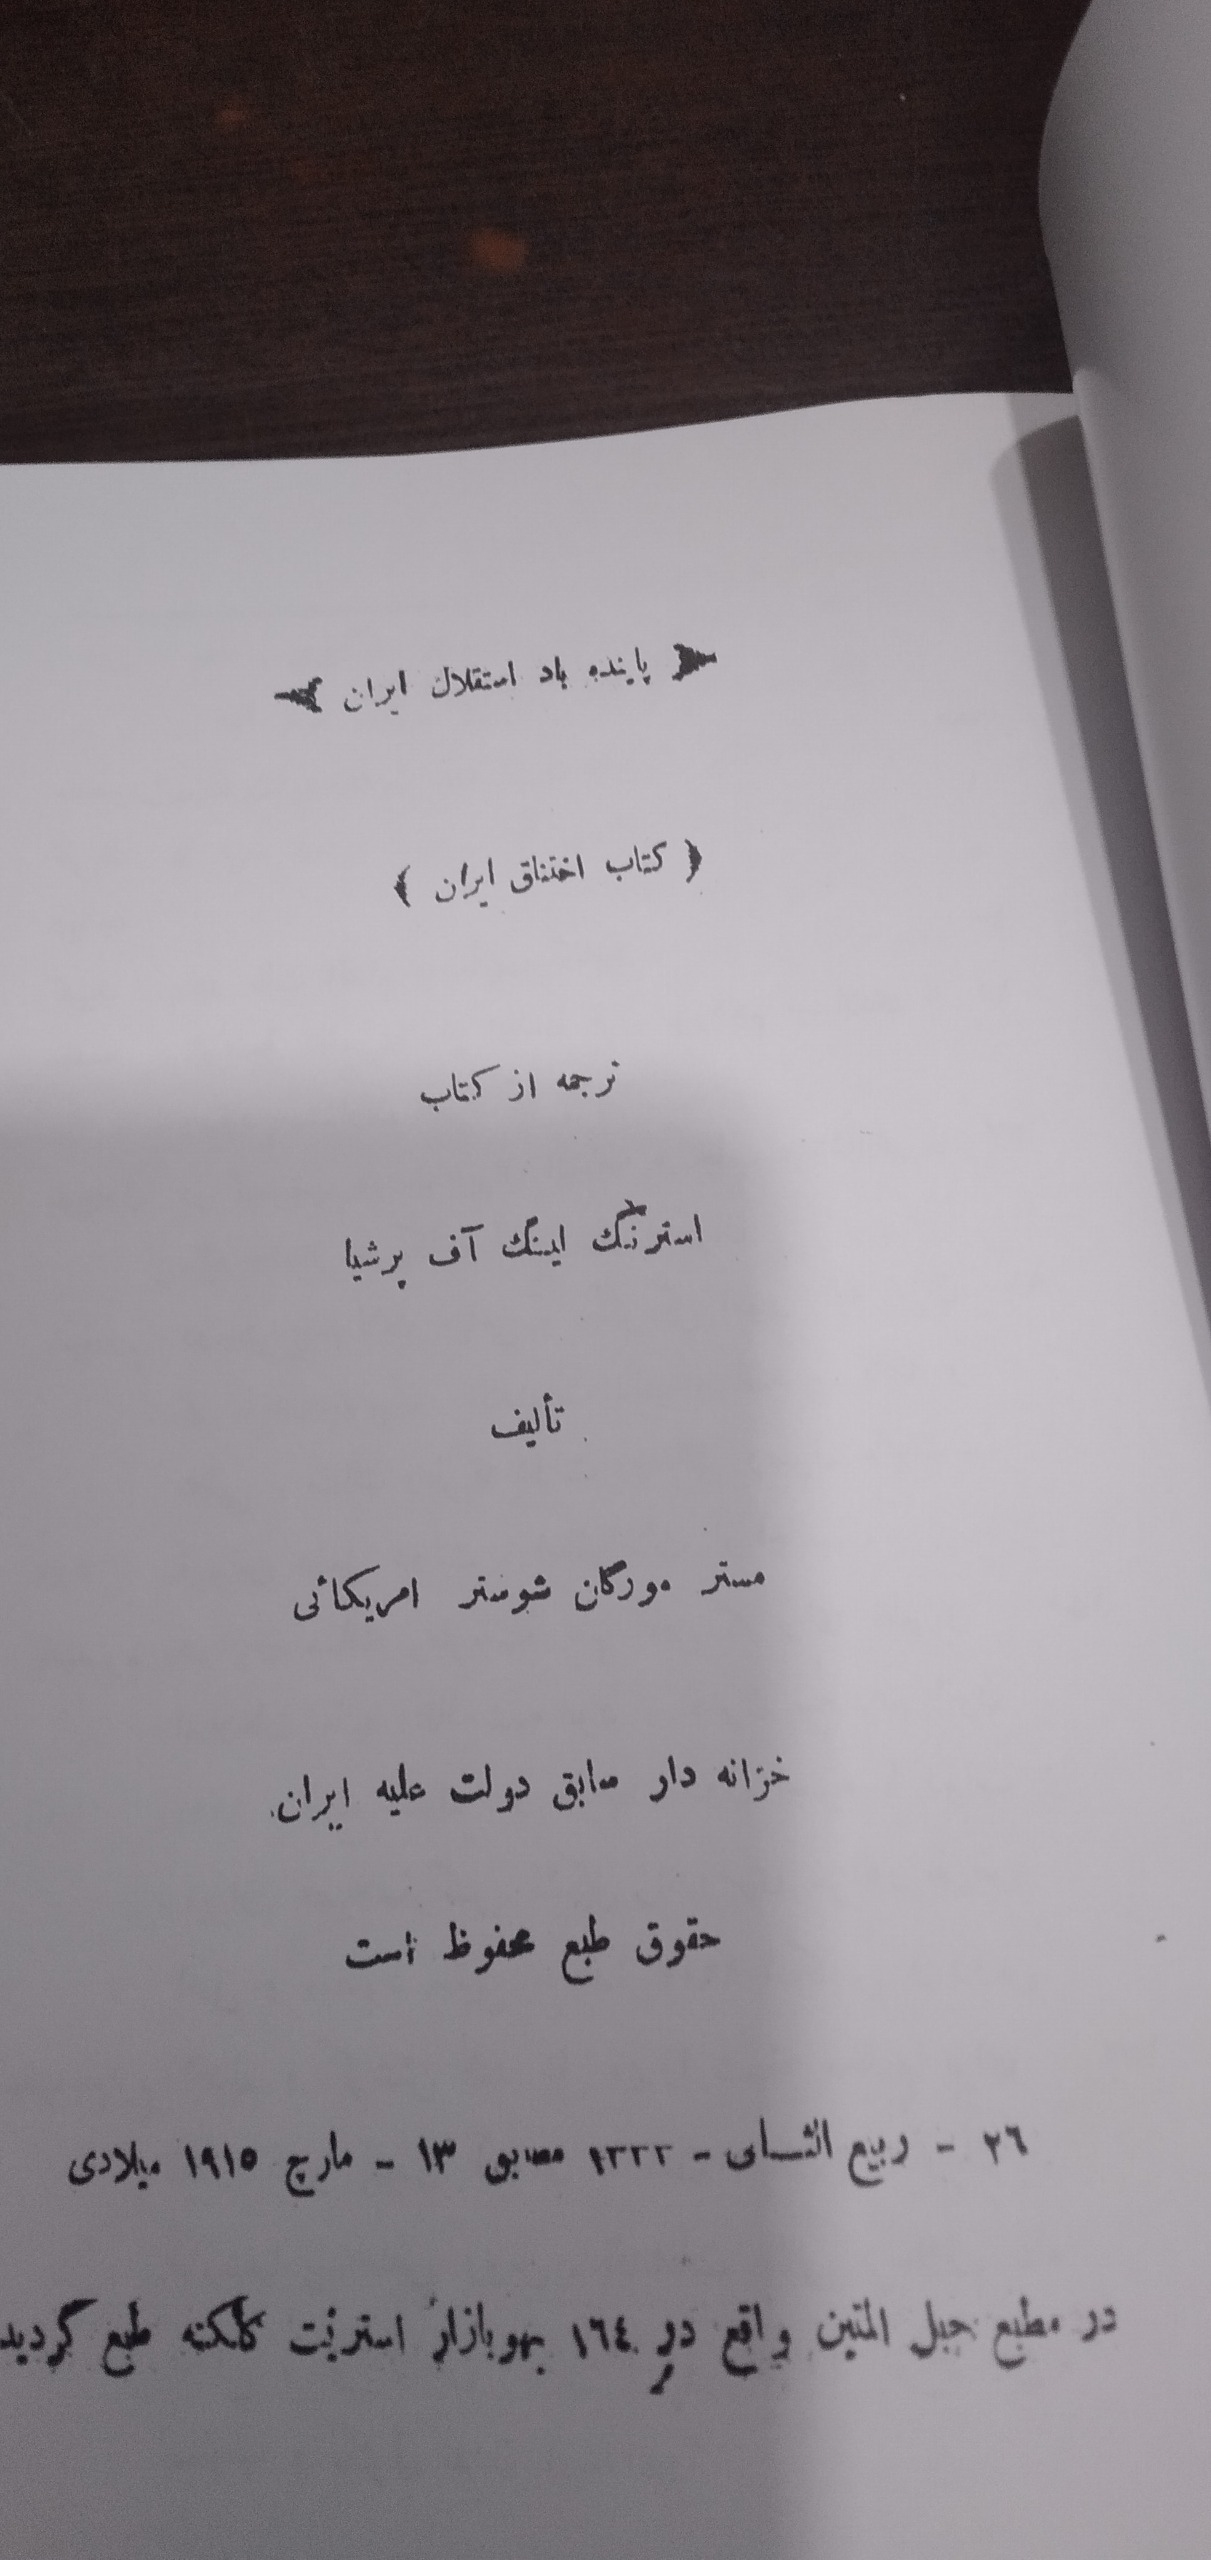 پاینده باد استقلال ایران
﴿ کتاب اختناق ایران ﴾
ترجمه از کتاب
استرنگ لینگ آف پرشیا
تألیف
مستر مورگان شوستر امریکائی
خزانه دار سابق دولت علیه ایران.
حقوق طبع محفوظ است
٢٦ - ربیع الثـانی - ١٣٣٣ مطابق ١٣ - مارچ ١٩١٥ میلادی
در مطبع حبل المتین واقع در ١٦٤ بهوبازار استریت کلکته طبع گردید